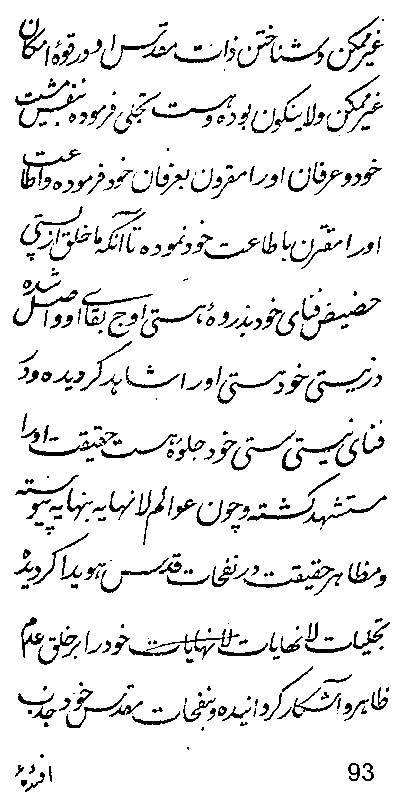 غیر ممکن و شناختن ذات مقدّس او در قوه امکان
غیر ممکن و لا یتکون بوده و هست تجلی فرموده بنفس مشیت
خود و عرفان او را مقرون بعرفان خود فرموده و اطاعت
او را مقترن باطاعت خود نموده تا آنکه ما خلق از پستی
حضیض فنای خود بذروهٔ هستی اوج بقای او واصل شده
در نیستی خود هستی او را شاهد گردیده و در
فنای نیستی هستی خود جلوهٔ هست حقیقت او را
مستشهد گشته و چون عوالم لا نهایه بنهایه پیوسته
و مظاهر حقیقت در نفحات قدس هویدا گردیده
تجلیات لا نهایات لا نهایات خود را بر خلق عدم
ظاهر و آشکار گردانیده و بنفحات مقدس خود جذب
93